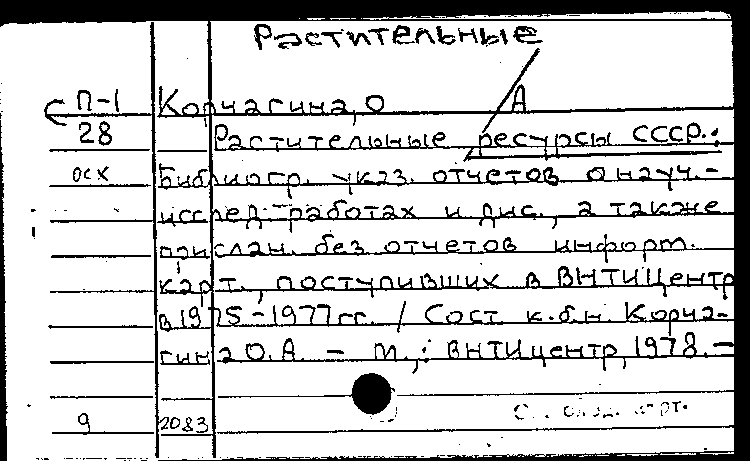 Растительные
П-1 Корчагина, О А
28 Растительные ресурсы СССР.:
осх Библиогр. указ. отчетов о науч.-
исслед. работах и дис., а также
прислан. без отчетов информ.
карт., поступивших в ВНТИЦентр
в 1975-1977гг. / Сост. к.б.н. Корча-
гина О.А. - М.,: ВНТИцентр, 1978. -
9 2083 след. карт.